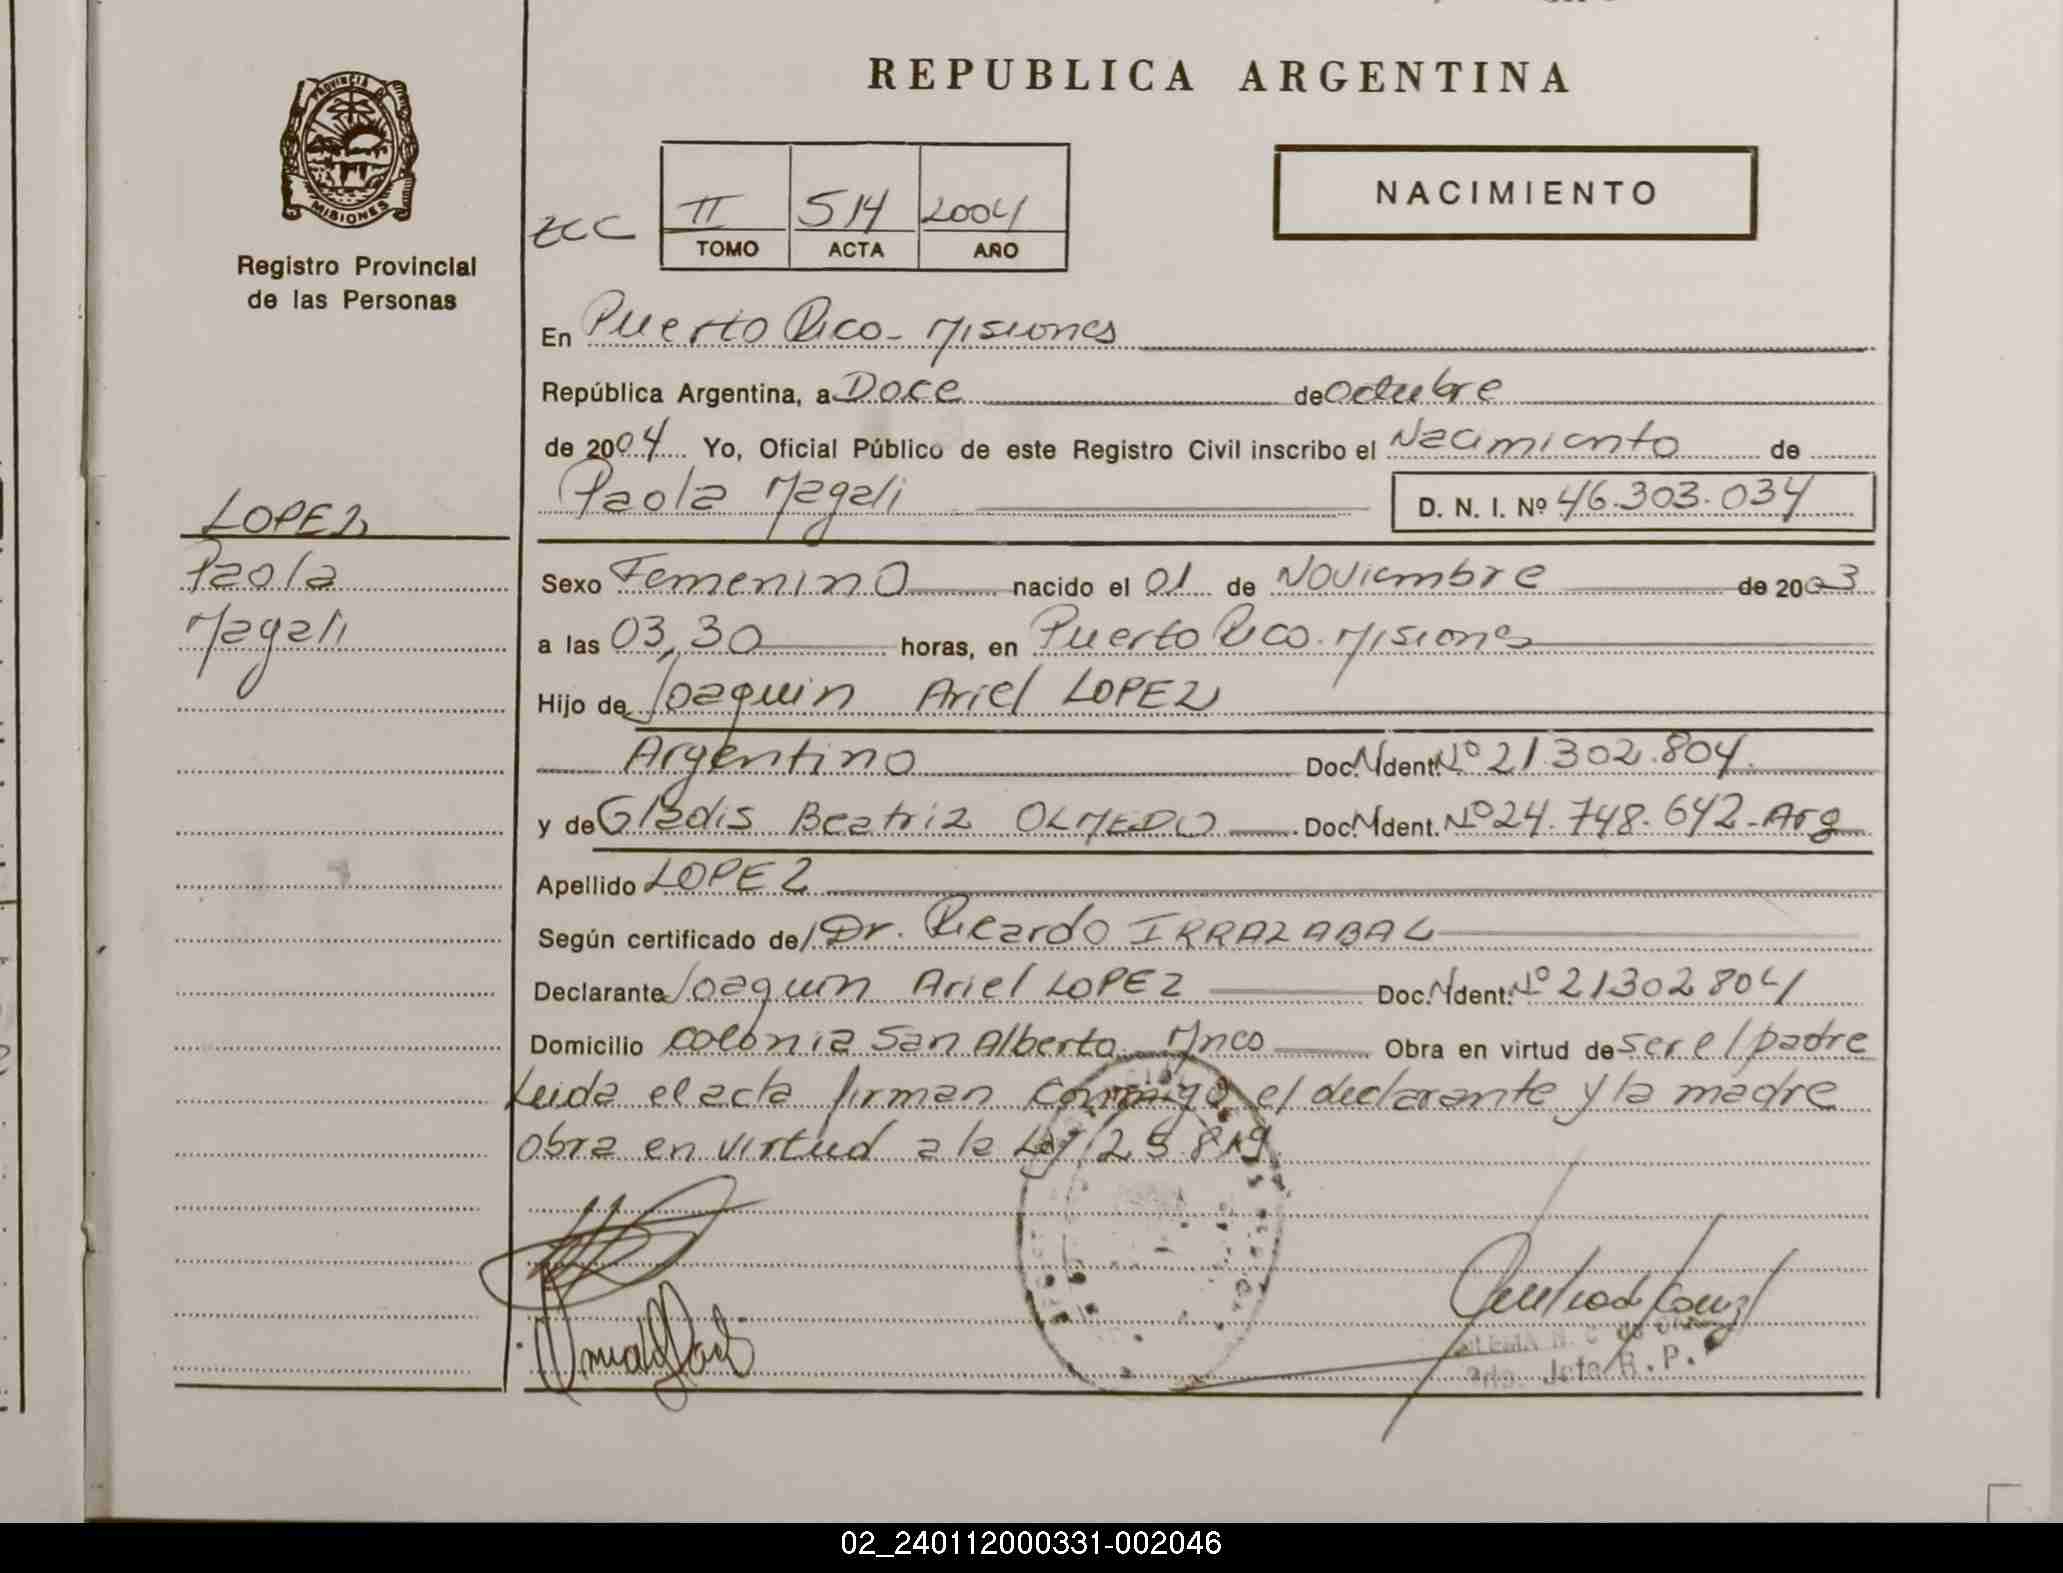 REPUBLICA ARGENTINA
PROVINCIA DE
MISIONES
Registro Provincial
de las Personas
II 514 2004
TOMO ACTA AÑO
NACIMIENTO
En Puerto Rico - Misiones
República Argentina, a Doce de Octubre
de 2004 Yo, Oficial Público de este Registro Civil inscribo el Nacimiento de
Paola Magali D. N. I. Nº 46.303.034
LOPEZ
Paola
Magali
Sexo Femenino nacido el 01 de Noviembre de 2003
a las 03,30 horas, en Puerto Rico. Misiones
Hijo de Joaquin Ariel LOPEZ
Argentino Doc. Ident. Nº 21.302.804
y de Gladis Beatriz OLMEDO Doc. Ident. Nº 24.748.642 - Arg
Apellido LOPEZ
Según certificado de Dr. Ricardo IRRAZABAL
Declarante Joaquin Ariel LOPEZ Doc. Ident. Nº 21302804
Domicilio Colonia San Alberto Obra en virtud de ser el padre
Leida el acta firman conmigo el declarante y la madre
obra en virtud a la Ley 25.819
02_240112000331-002046